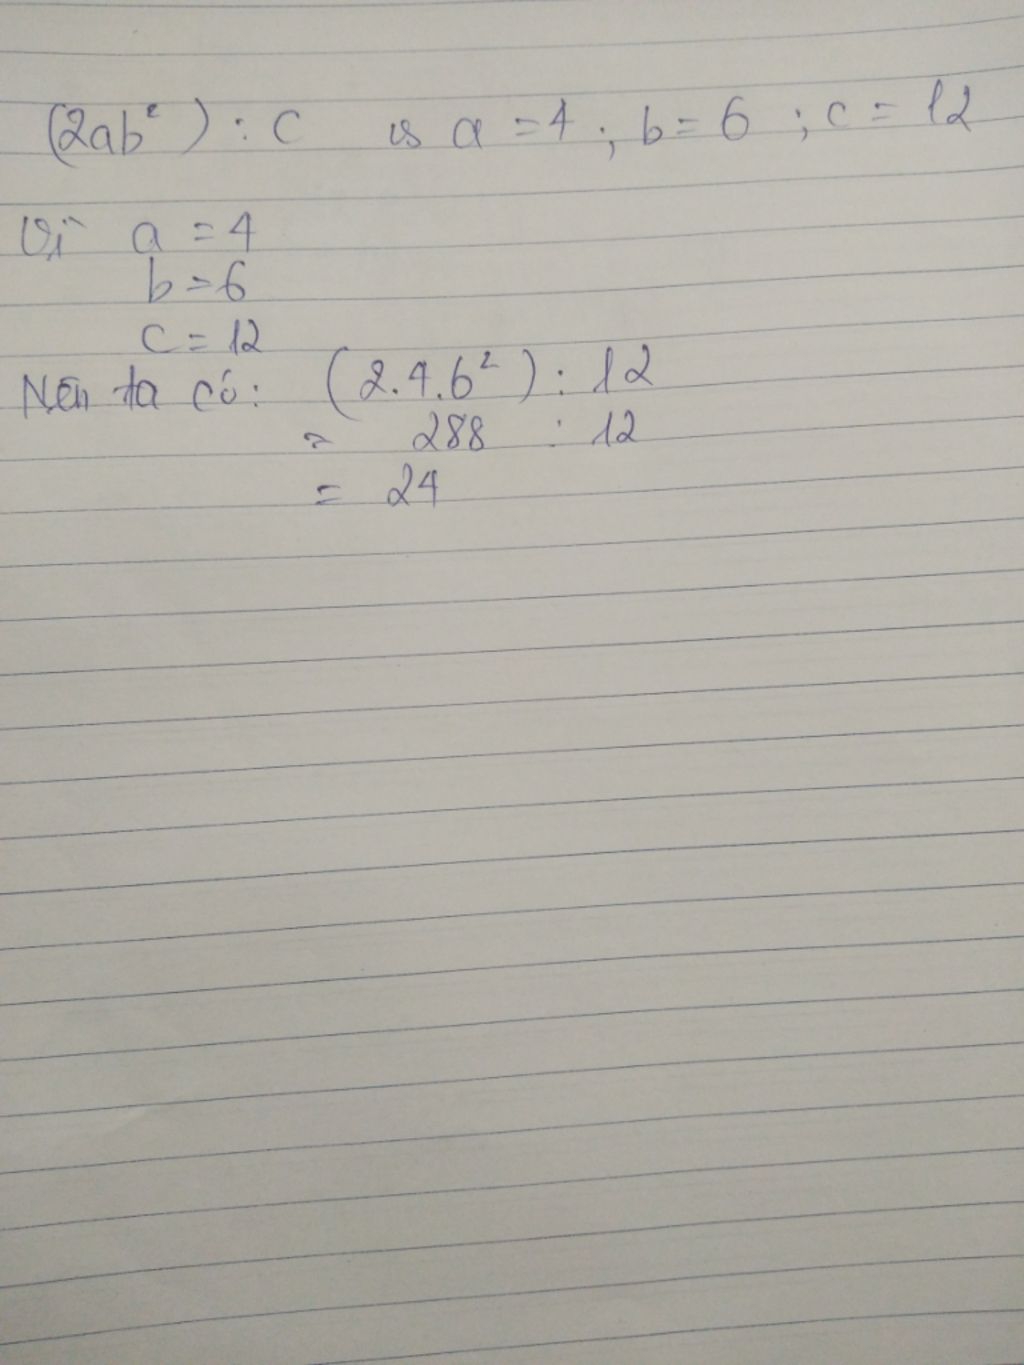 (2ab²) : c vs a = 4 ; b = 6 ; c = 12
Vì a = 4
b = 6
c = 12
Nên ta có: (2.4.6²) : 12
= 288 : 12
= 24